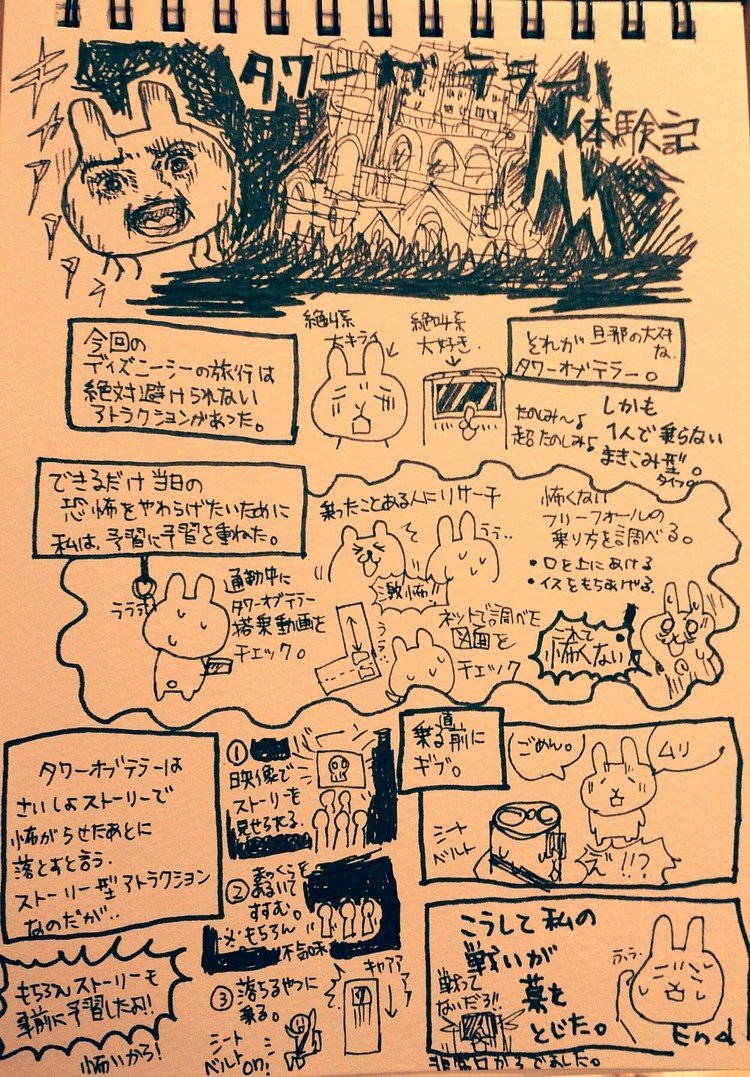 タワーオブテラー
体験記
ギャアアアア
今回の
ディズニーシーの旅行は
絶対避けられない
アトラクションがあった。
絶叫系
大キライ
絶叫系
大好き.
それが旦那の大好き
な
タワーオブテラー。
たのしみ〜♪
超たのしみ♪
しかも
1人で乗らない
まきこみ型。
タイプ。
できるだけ当日の
恐怖をやわらげたいために
私は、予習に予習を重ねた。
乗ったことある人にリサーチ
激怖!!
怖くない
フリーフォールの
乗り方を調べる。
・口を上にあける
・イスをもちあげる
通勤中に
タワーオブテラー
搭乗動画を
チェック。
ネットで調べを
図面を
チェック
これで
怖くない!
タワーオブテラーは
さいしょストーリーで
怖がらせたあとに
落とすと言う.
ストーリー型アトラクション
なのだが..
もちろんストーリーも
事前に予習したよ!!
怖いから!
①
映像で
ストーリーを
見せられる.
②
まっくらを
あるいて
すすむ。
※もちろん
不気味
③落ちるやつに
乗る。
シート
ベルト
on!
キャアアア
乗る直前に
ギブ。
ごめん。
ムリ
シート
ベルト
え"!!?
こうして私の
戦いが
幕を
とじた。
戦って
ないだろ!!
End
非常口からでました。